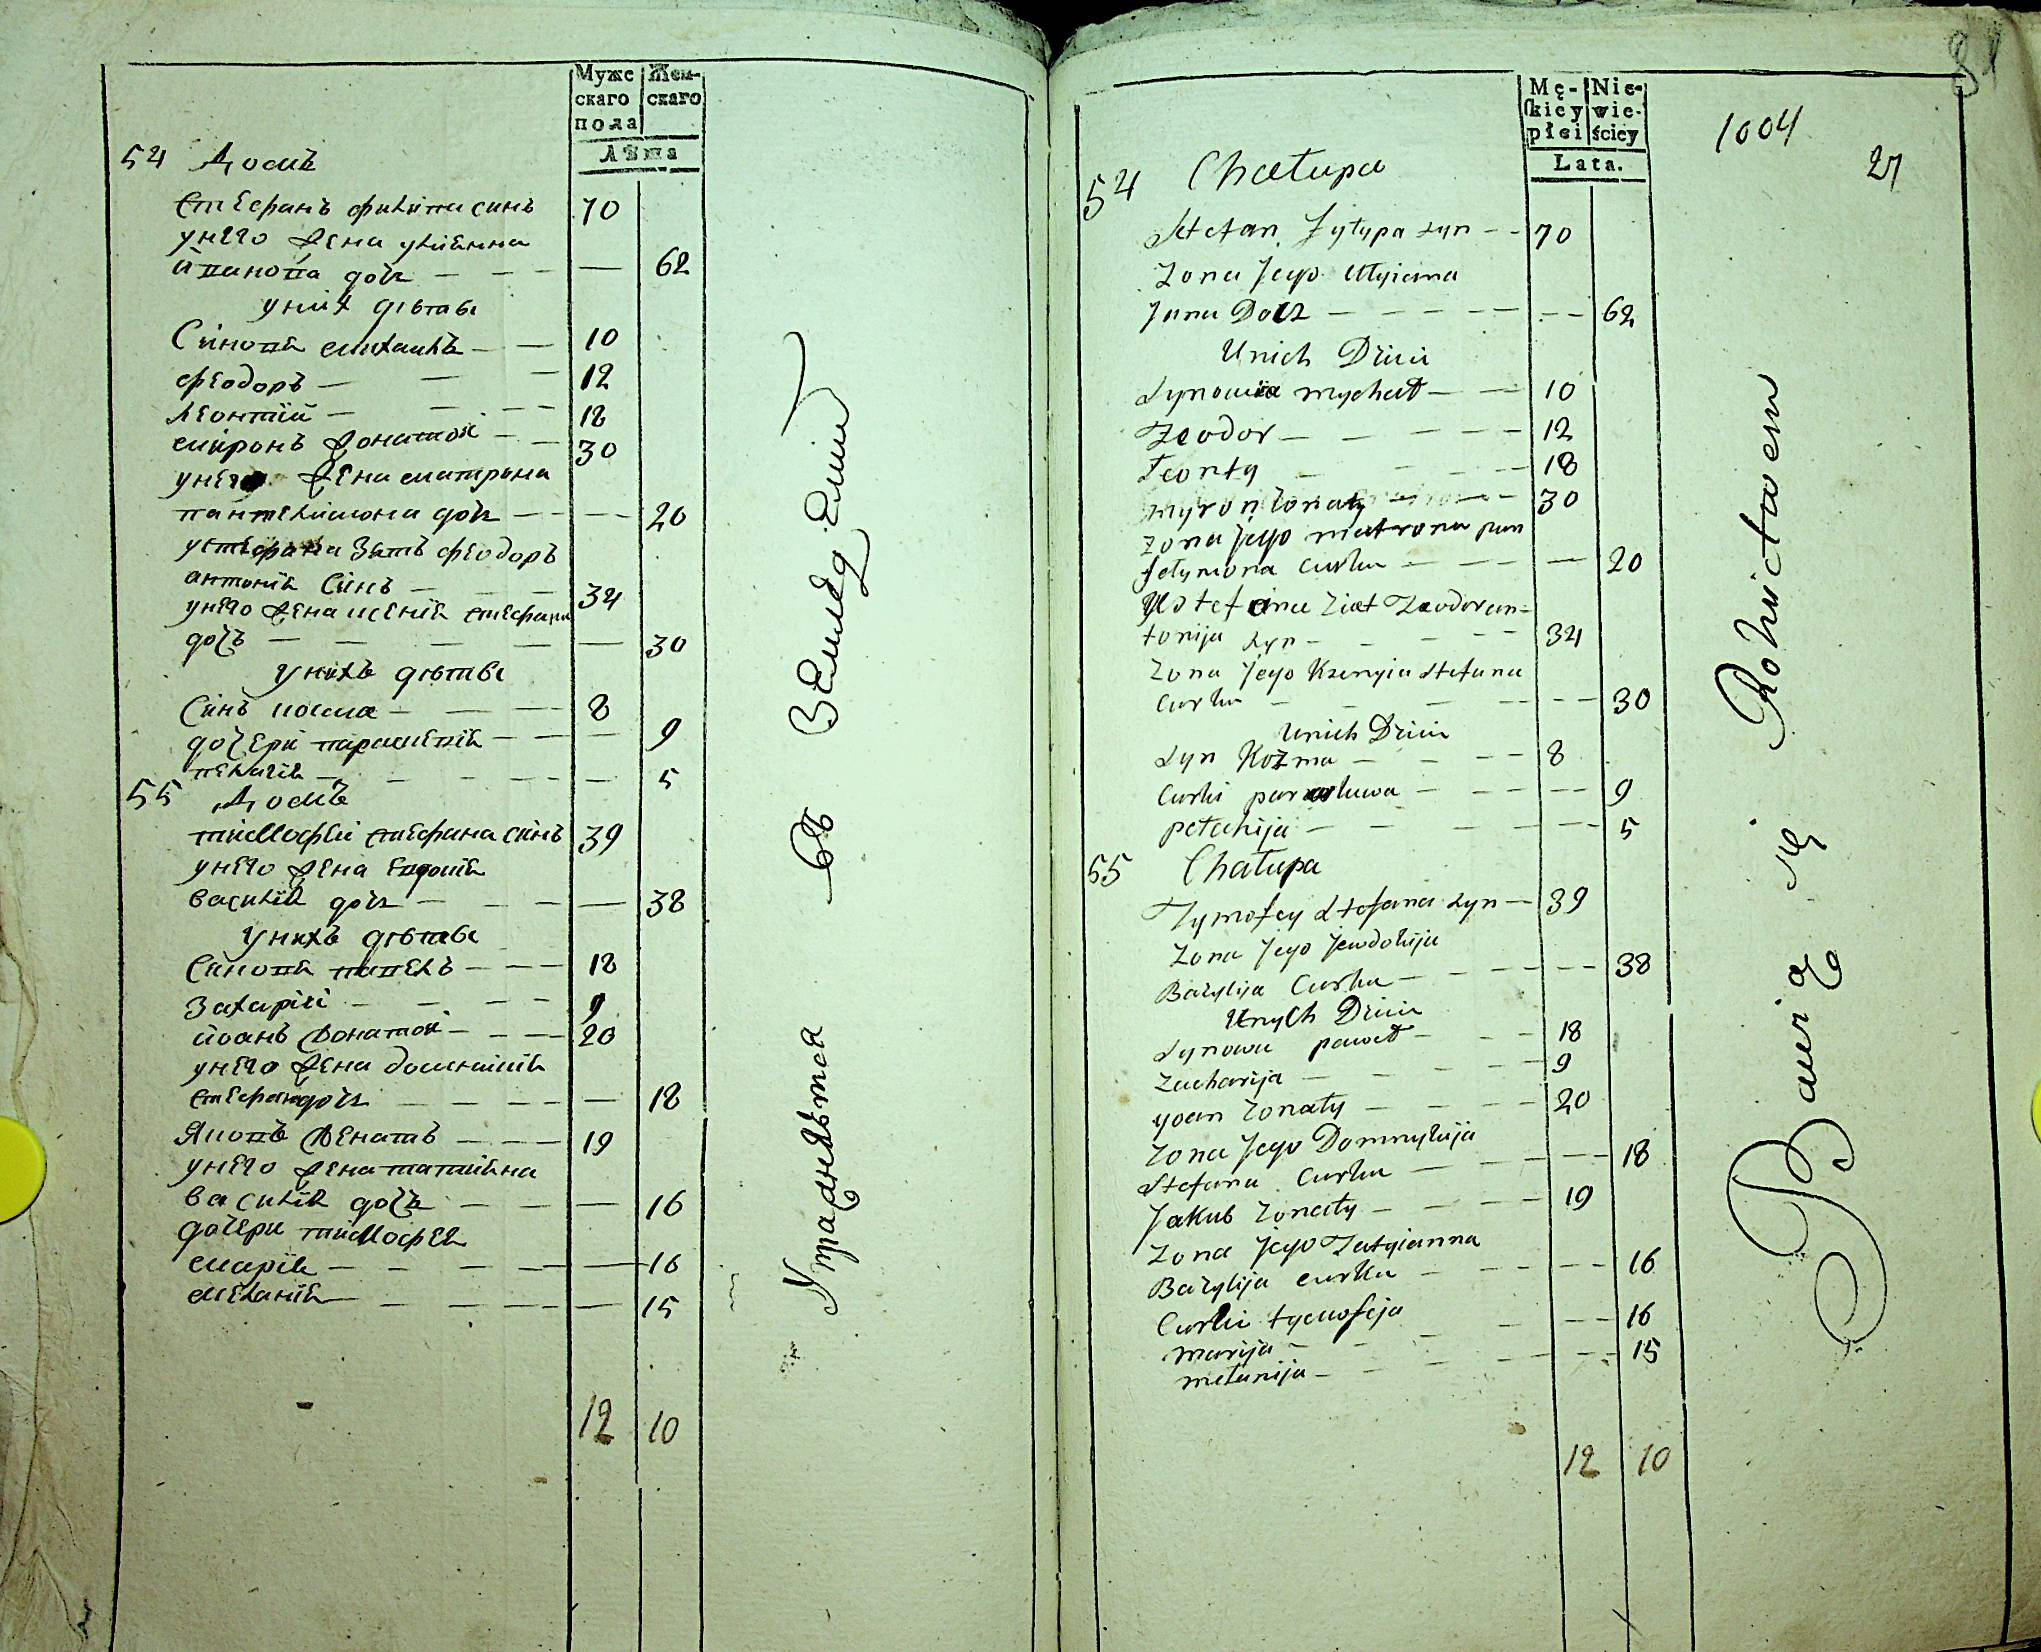 Муже
скаго
пола
Жен-
скаго
Лѣта
54 Домъ
Стефанъ филипа синъ 70
унего жена улиенна
дочь — — — — 62
уних дѣтеи
Синове михаилъ — — 10
феодоръ — — — 12
леонтий — — — 18
миронъ жонатой — — 30
унего жена матрона
пантелимона дочь — — — 20
устефана Зять феодоръ
антония Синъ — — — 34
унего жена ксения стефана
дочъ — — — — — 30
Унихъ дѣтеи
Синъ козма — — — 8
дочери параскевия — — — 9
пелагия — — — — — 5
55 Домъ
тимофей стефана синъ 39
унего жена евдокия
василия дочь — — — — 38
Унихъ дѣтеи
Синове павелъ — — — 18
Захарий — — — 9
иоанъ жонатой — — — 20
унего жена домникия
стефана дочь — — — — — 18
Яковъ женатъ — — — 19
унего жена татиянна
василия дочъ — — — 16
дочери тимофея
мария — — — — — 16
мелания — — — — — 15
12 10
Упражняѣтса въ Земледелии
Mę-
skiey
płci
Nie-
wie-
ściey
Lata.
1004
27
81
54 Chałupa
Stefan Fylypa syn - - 70
Zona Jego Ulyjanna
Docz — — — — — - — 62
Unich Dzieci
Synowie mychał — — 10
Teodor — — — — — 12
Leonty — — — 18
myron żonaty — — — 30
żona Jego matrona pan
telymona curka — — — — 20
Ustefana ziat Teodor an=
tonija syn — — — — 34
zona Jego Ksenyia Stefana
curka — — — — — 30
Unich Dzieci
Syn Kozma — — — 8
Curki paraskewa — — — — 9
pełahija — — — — — 5
55 Chałupa
Tymofey Stefana syn — 39
Zona Jego Jewdokija
Bazylija Curka — — — — — 38
Unych Dzieci
Synowe paweł — — — 18
Zacharija — — — — 9
yoan żonaty — — — — 20
Zona Jego Domnykija
Stefana Curka — — — — 18
Jakub żonaty — — — — 19
Zona Jego Tatyianna
Bazylija curka — — — — — 16
Curki tymofeja
marija — — — — — — 16
mełanija — — — — — — 15
12 10
Bawią się Rolnictwem